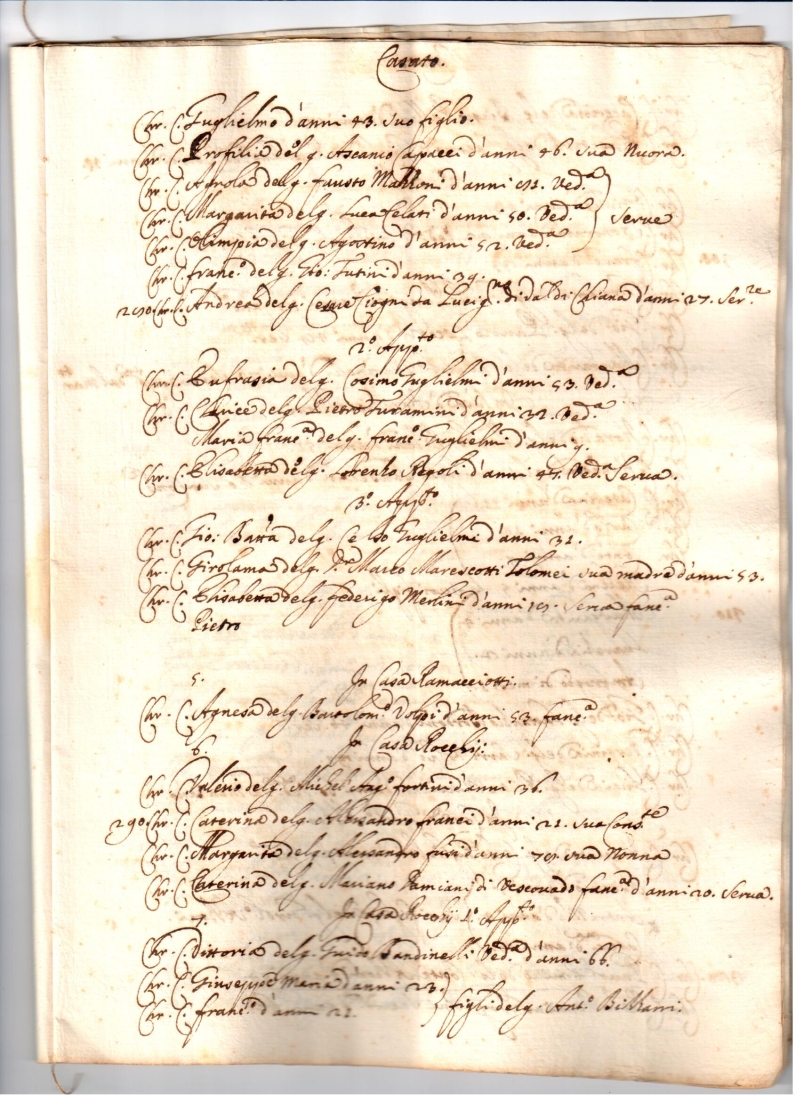 Casato.
Chr. C. Guglielmo d'anni 43. suo figlio.
Chr. C. Profilia del q. Ascanio Capacci d'anni 46. sua Nuora.
Chr. C. Agnola del q. Fausto d'anni Ved.a
Chr. C. Margarita del q. Luca Celati d'anni 50. Ved.a } Serue
Chr. C. Olimpia del q. Agostino d'anni 52. Ved.a
Chr. C. Franc.o del q. Gio: Tutini d'anni 39.
Chr. C. Andrea del q. Cesare Ciogni da Lucig.no di Val di Chiana d'anni 27. Ser.re
2.o App.to
Chr. C. Eufrasia del q. Cosimo Guglielmi d'anni 53. Ved.a
Chr. C. Clarice del q. Pietro Turamini d'anni 32. Ved.a
Maria Franc.a del q. Franc.o Guglielmi d'anni 9.
Chr. C. Elisabetta del q. Lorenzo Regoli d'anni Ved.a Serua.
3.o App.to
Chr. C. Gio: Batta del q. Celso Guglielmi d'anni 31.
Chr. C. Girolama del q. Marco Marescotti Tolomei sua madre d'anni 53.
Chr. C. Elisabetta del q. Federigo Merlini d'anni Serua fanc.a
Pietro
5. In Casa Ramacciotti.
Chr. C. Agnesa del q. Bartolom.o Volpi d'anni 53. fanc.a
6. In Casa Rocchij:
Chr. C. Valerio del q. Michel Ang.o Fortini d'anni 36.
290 Chr. C. Caterina del q. Alessandro Franci d'anni 21. sua Cons.te
Chr. C. Margarita del q. Alessandro d'anni sua Nonna
Chr. C. Caterina del q. Mariano Damiani di Vescouado fanc.a d'anni 20. Serua.
7. In Casa Rocchij 1.o App.to
Chr. C. Vittoria del q. Guido Bandinelli Ved.a d'anni 66.
Chr. C. Giuseppe Maria d'anni 23.
Chr. C. Franc.o d'anni 21. } figli del q. Ant.o